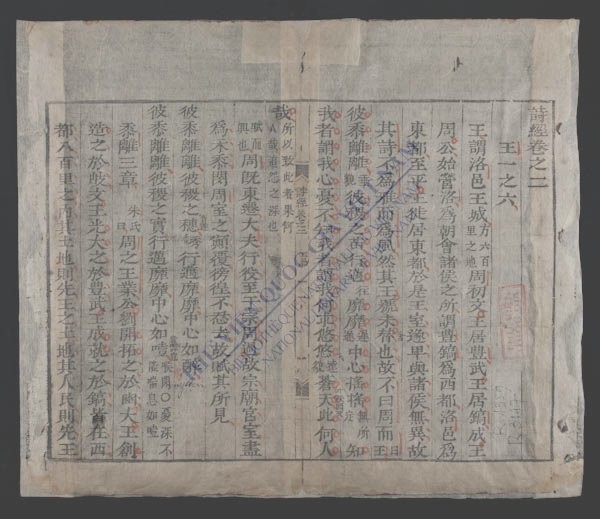 詩經卷之二
王一之六
王謂洛邑王城方六百里之地周初文王居豐武王居鎬成王
周公始營洛爲朝會諸侯之所謂豐鎬爲西都洛邑爲
東都至平王徙居東都於是王室遂卑與諸侯無異故
其詩不爲雅而爲風然其王號未替也故不曰周而曰王
彼黍離離彼稷之苗行邁靡靡中心搖搖無所定知
我者謂我心憂不知我者謂我何求悠悠蒼天此何人
詩經卷三
哉所以致此者果何人哉追怨之深也
賦而興也周既東遷大夫行役至于宗周過故宗廟宮室盡
爲禾黍閔周室之顛覆彷徨不忍去故賦其所見
彼黍離離彼稷之穗行邁靡靡中心如
彼黍離離彼稷之實行邁靡靡中心如噎憂深不
黍離三章朱氏曰周之王業公劉開拓之於豳大王創
造之於岐文王光大之於豐武王成就之於鎬皆在西
都八百里之內其土地則先王之土地其人民則先王
THƯ VIỆN QUỐC GIA VIỆT NAM
NATIONAL LIBRARY OF VIETNAM